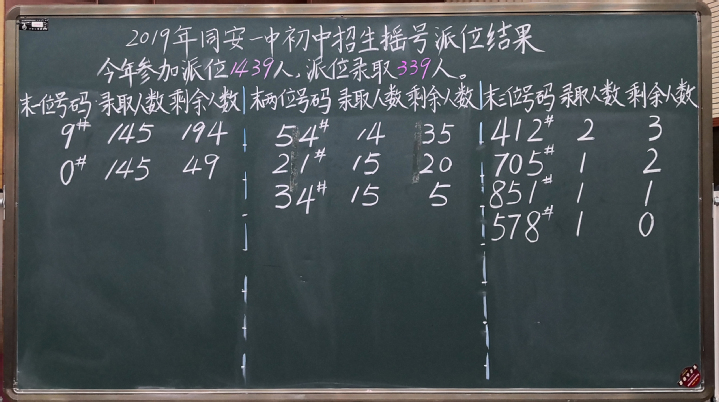 2019年同安一中初中招生摇号派位结果
今年参加派位1439人,派位录取339人。
末一位号码 录取人数 剩余人数 末两位号码 录取人数 剩余人数 末三位号码 录取人数 剩余人数
9# 145 194 54# 14 35 412# 2 3
0# 145 49 21# 15 20 705# 1 2
34# 15 5 851# 1 1
578# 1 0